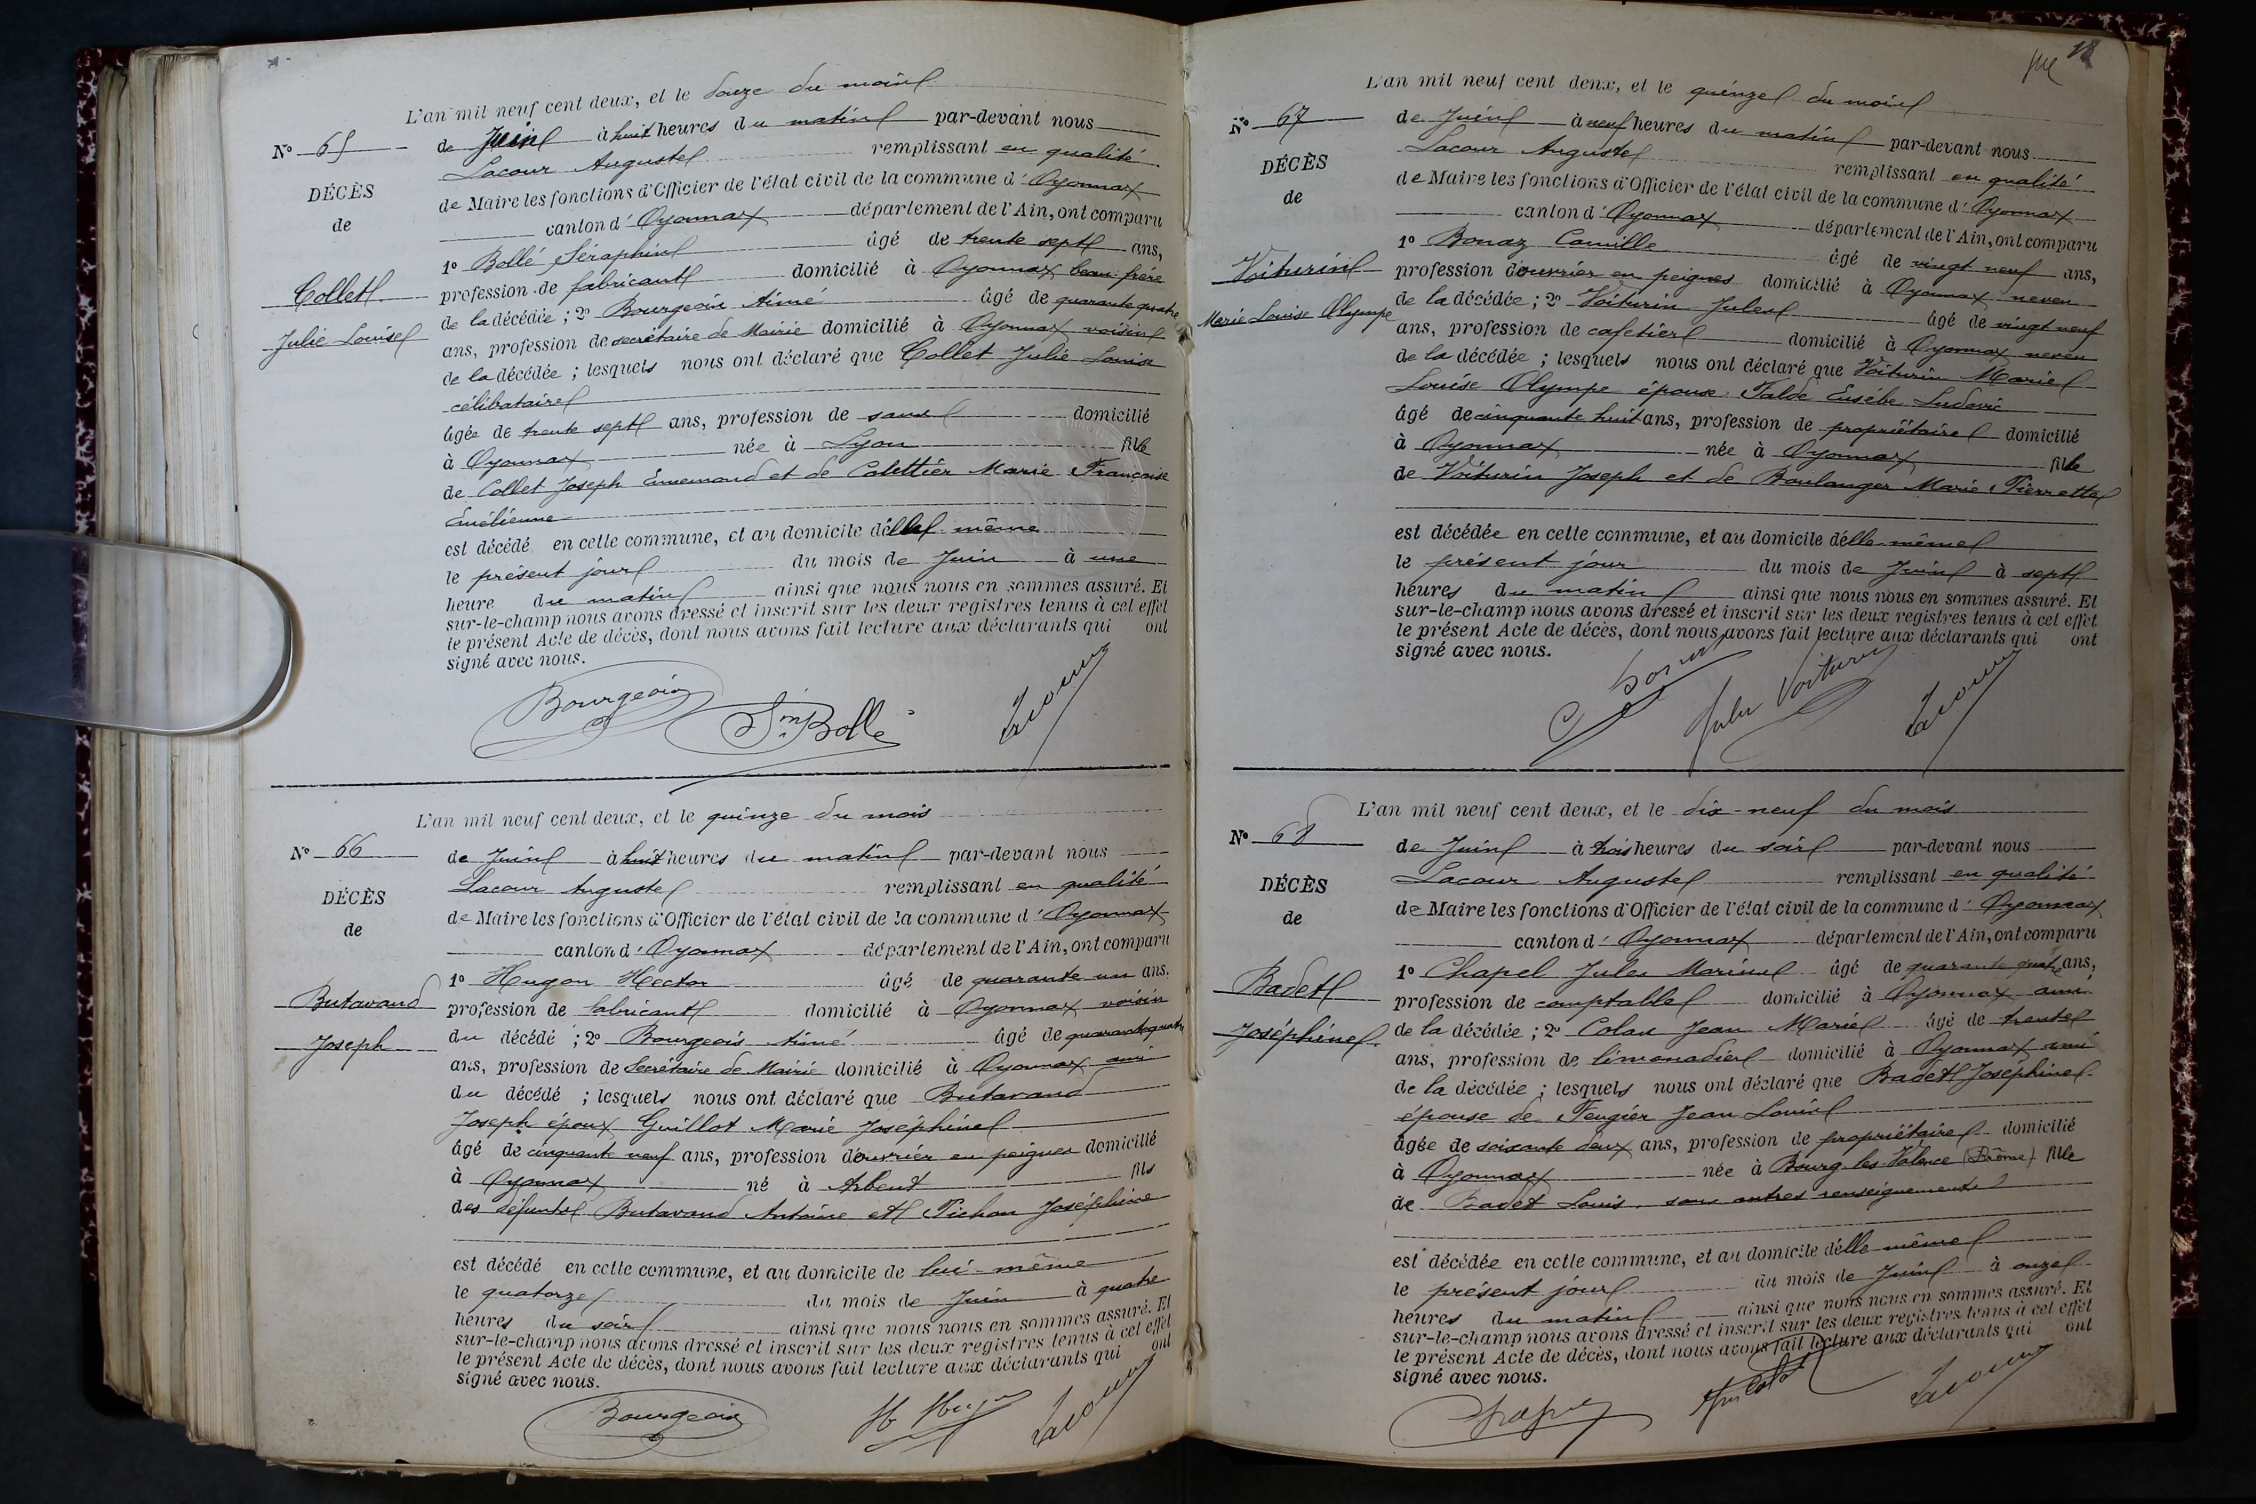 L'an mil neuf cent deux, et le douze du mois
N° 65
de Juin à huit heures du matin par-devant nous
Lacour Auguste remplissant en qualité
DÉCÈS
de Maire les fonctions d'Officier de l'état civil de la commune d'Oyonnax
de
canton d'Oyonnax département de l'Ain, ont comparu
1° Bollé Séraphin âgé de trente sept ans,
Collet
profession de fabricant domicilié à Oyonnax beau-frère
de la décédée ; 2° Bourgeois Aimé âgé de quarante quatre
Julie Louise
ans, profession de secrétaire de Mairie domicilié à Oyonnax voisin
de la décédée ; lesquels nous ont déclaré que Collet Julie Louise
célibataire
âgée de trente sept ans, profession de sans domicilié
à Oyonnax née à Lyon fille
de Collet Joseph Ennemond et de Colettier Marie Françoise
Emélienne
est décédé en cette commune, et au domicile d'elle même
le présent jour du mois de Juin à une
heure du matin ainsi que nous nous en sommes assuré. Et
sur-le-champ nous avons dressé et inscrit sur les deux registres tenus à cet effet
le présent Acte de décès, dont nous avons fait lecture aux déclarants qui ont
signé avec nous.
Bourgeois Sin Bollé Lacour
L'an mil neuf cent deux, et le quinze du mois
N° 66
de Juin à huit heures du matin par-devant nous
Lacour Auguste remplissant en qualité
DÉCÈS
de Maire les fonctions d'Officier de l'état civil de la commune d'Oyonnax
de
canton d'Oyonnax département de l'Ain, ont comparu
1° Hugon Hector âgé de quarante un ans.
Butavand
profession de fabricant domicilié à Oyonnax voisin
du décédé ; 2° Bourgeois Aimé âgé de quarante quatre
Joseph
ans, profession de Secrétaire de Mairie domicilié à Oyonnax ami
du décédé ; lesquels nous ont déclaré que Butavand
Joseph époux Guillot Marie Joséphine
âgé de cinquante neuf ans, profession d'ouvrier en peignes domicilié
à Oyonnax né à Arbent fils
des défunts Butavand Antoine et Pichon Joséphine
est décédé en cette commune, et au domicile de lui-même
le quatorze du mois de Juin à quatre
heures du soir ainsi que nous nous en sommes assuré. Et
sur-le-champ nous avons dressé et inscrit sur les deux registres tenus à cet effet
le présent Acte de décès, dont nous avons fait lecture aux déclarants qui ont
signé avec nous.
Bourgeois H Hugon Lacour
18
L'an mil neuf cent deux, et le quinze du mois
N° 67
de Juin à neuf heures du matin par-devant nous
Lacour Auguste remplissant en qualité
DÉCÈS
de Maire les fonctions d'Officier de l'état civil de la commune d'Oyonnax
de
canton d'Oyonnax département de l'Ain, ont comparu
1° Bonaz Camille âgé de vingt neuf ans,
Voiturin
profession d'ouvrier en peignes domicilié à Oyonnax neveu
de la décédée ; 2° Voiturin Jules âgé de vingt neuf
Marie Louise Olympe
ans, profession de cafetier domicilié à Oyonnax neveu
de la décédée ; lesquels nous ont déclaré que Voiturin Marie
Louise Olympe épouse Taldé Eusébe Ludovic
âgé de cinquante huit ans, profession de propriétaire domicilié
à Oyonnax née à Oyonnax fille
de Voiturin Joseph et de Boulanger Marie Pierrette
est décédée en cette commune, et au domicile d'elle-même
le présent jour du mois de Juin à sept
heures du matin ainsi que nous nous en sommes assuré. Et
sur-le-champ nous avons dressé et inscrit sur les deux registres tenus à cet effet
le présent Acte de décès, dont nous avons fait lecture aux déclarants qui ont
signé avec nous.
C Bonaz Jules Voiturin Lacour
L'an mil neuf cent deux, et le dix-neuf du mois
N° 68
de Juin à trois heures du soir par-devant nous
Lacour Auguste remplissant en qualité
DÉCÈS
de Maire les fonctions d'Officier de l'état civil de la commune d'Oyonnax
de
canton d'Oyonnax département de l'Ain, ont comparu
1° Chapel Jules Marius âgé de quarante quatre ans,
Badet
profession de comptable domicilié à Oyonnax ami
Joséphine
de la décédée ; 2° Colas Jean Marie âgé de trente
ans, profession de limonadier domicilié à Oyonnax ami
de la décédée ; lesquels nous ont déclaré que Badet Joséphine
épouse de Feugier Jean Louis
âgée de soixante deux ans, profession de propriétaire domicilié
à Oyonnax née à Bourg les Valence (Drôme) fille
de Badet Louis, sans autres renseignements
est décédée en cette commune, et au domicile d'elle-même
le présent jour du mois de Juin à onze
heures du matin ainsi que nous nous en sommes assuré. Et
sur-le-champ nous avons dressé et inscrit sur les deux registres tenus à cet effet
le présent Acte de décès, dont nous avons fait lecture aux déclarants qui ont
signé avec nous.
Chapel Lacour